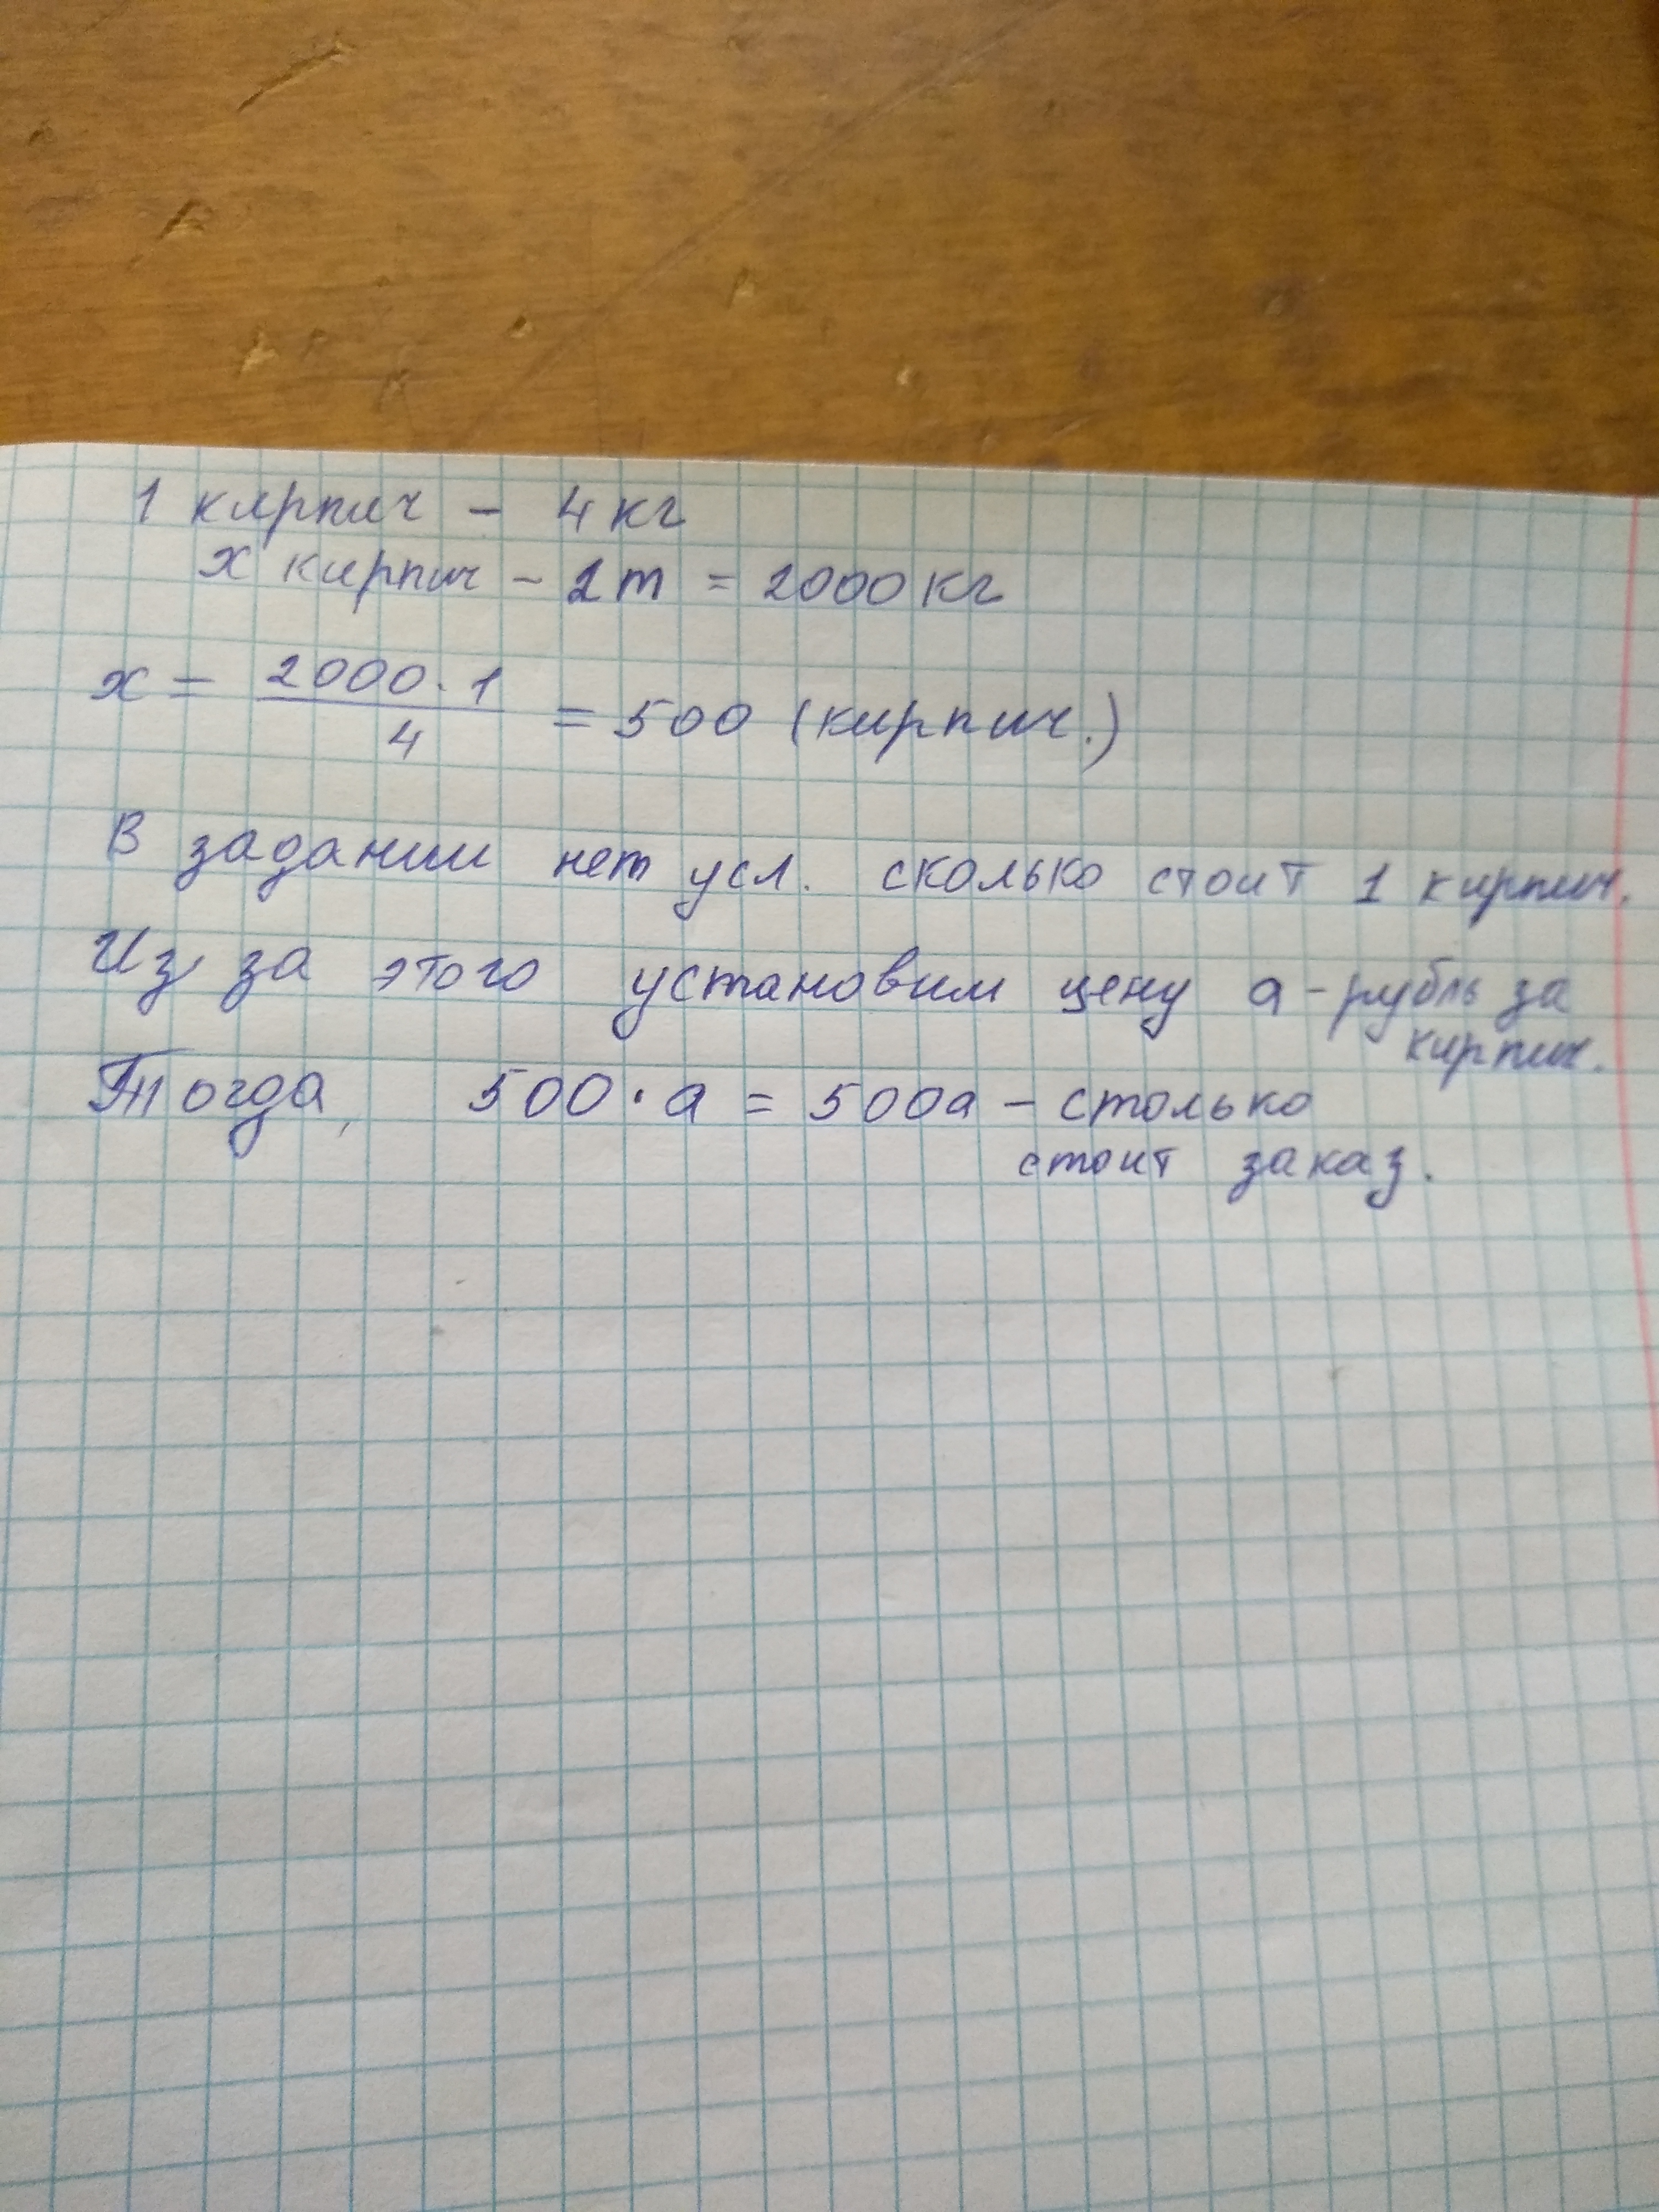 1 кирпич - 4 кг
х кирпич - 2т = 2000 кг
х = 2000 · 1 / 4 = 500 (кирпич.)
В задании нет усл. сколько стоит 1 кирпич.
Из за этого установим цену а - рубль за
кирпич.
Тогда, 500 · а = 500а - столько
стоит заказ.